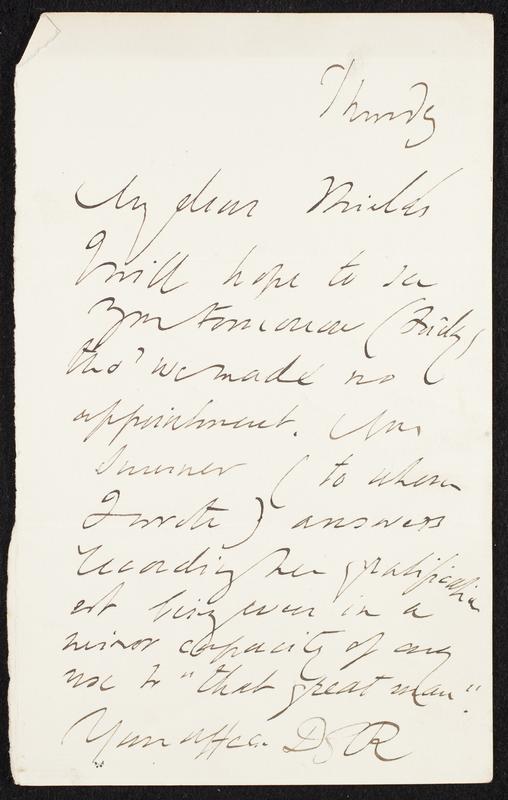 Thursdy
My dear Shields
I will hope to see
you tomorrow (Friday)
tho' we made no
appointment. Mrs
Sumner (to whom
I wrote) answers
recording her gratification
at being even in a
minor capacity of any
use to "that great man".
Your affec. DGR